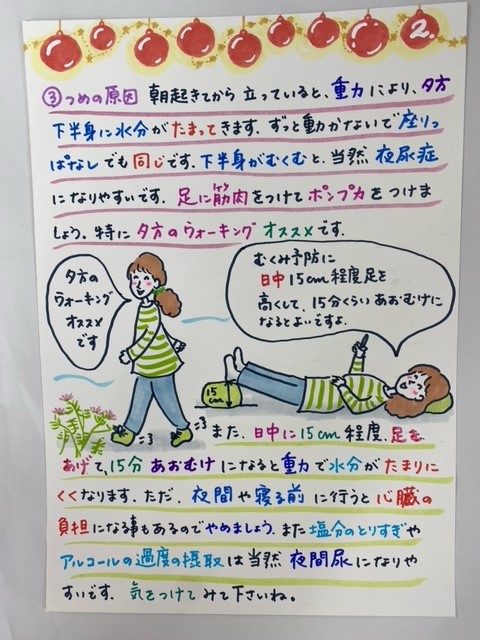 2.
③つめの原因 朝起きてから立っていると、重力により、夕方
下半身に水分がたまってきます。ずっと動かないで座りっ
ぱなしでも同じです。下半身がむくむと、当然、夜尿症
になりやすいです。足に筋肉をつけてポンプ力をつけま
しょう。特に夕方のウォーキングオススメです。
夕方の
ウォーキング
オススメ
です
むくみ予防に
日中15cm程度足を
高くして、15分くらいあおむけに
なるとよいですよ。
15
cm
また、日中に15cm程度、足を
あげて、15分あおむけになると重力で水分がたまりに
くくなります。ただ、夜間や寝る前に行うと心臓の
負担になる事もあるのでやめましょう。また塩分のとりすぎや
アルコールの過度の摂取は当然夜間尿になりや
すいです。気をつけてみて下さいね。